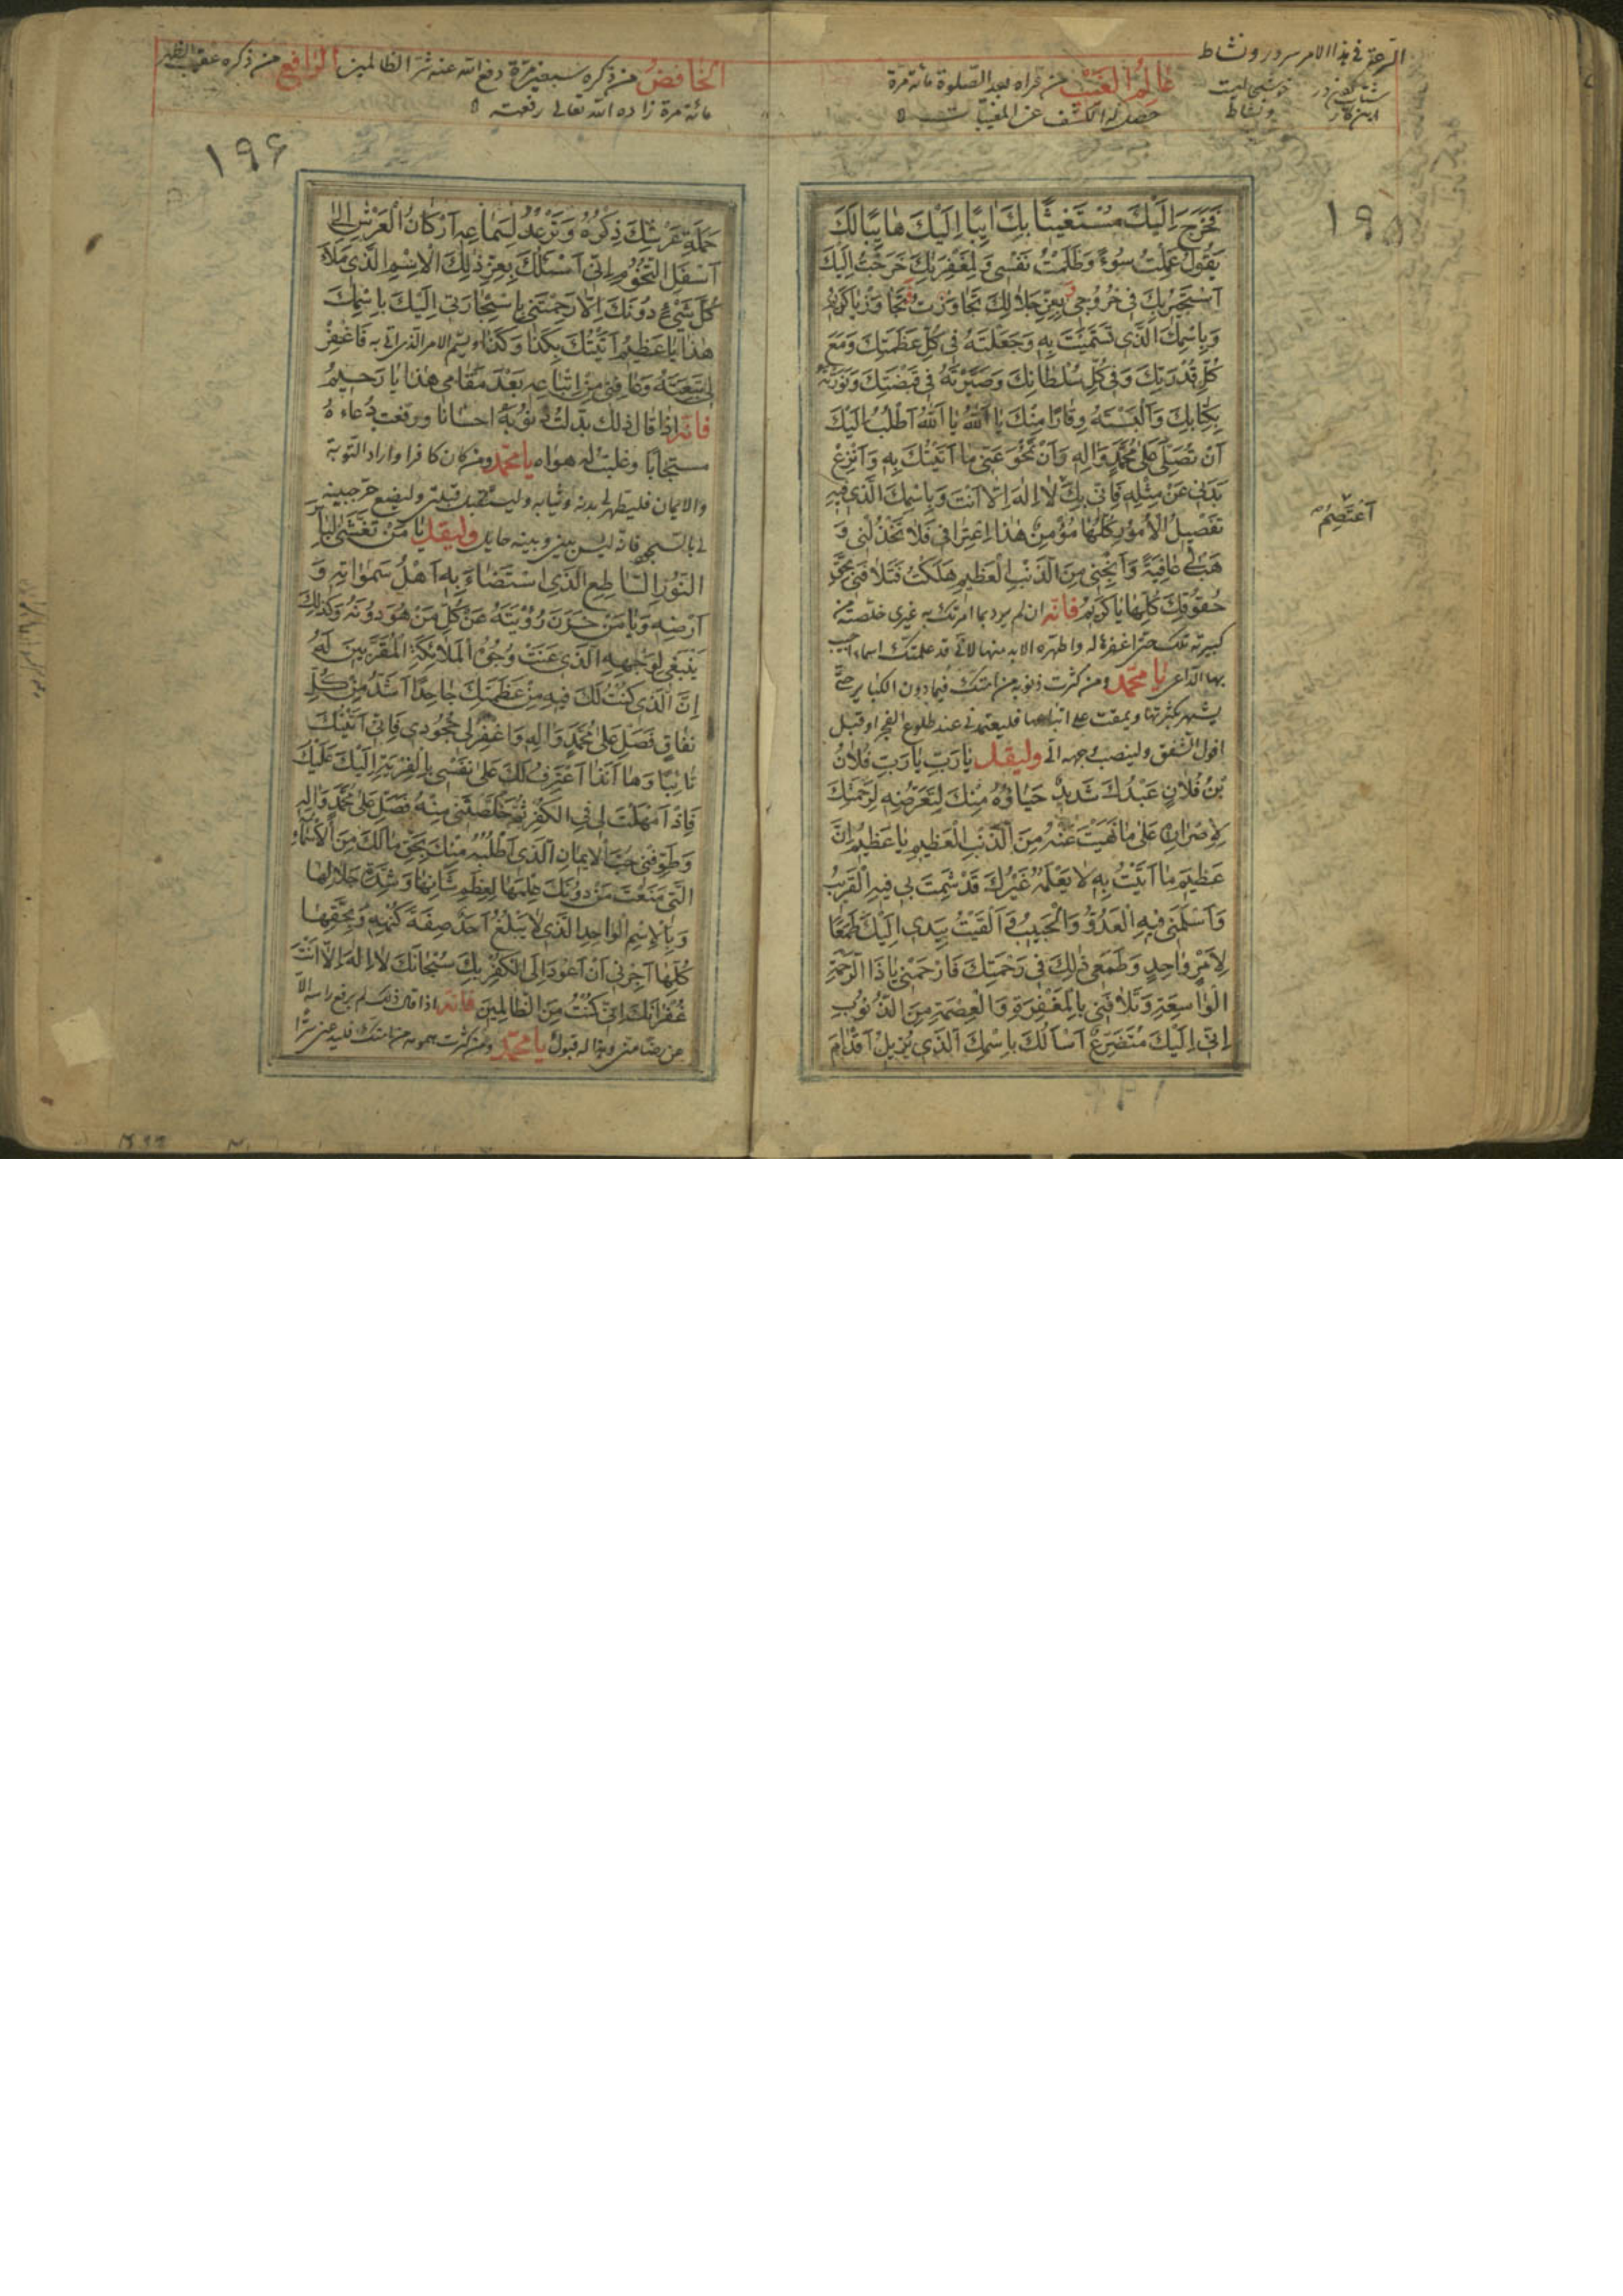 عالم الغيب من قراه بعد الصلوة مائة مرة
حصل له الكشف عن المغيبات
١٩٥
فَخَرَجَ اِلَيْكَ مُسْتَغيثًا بِكَ ايِبًا اِلَيْكَ هايِبًا لَكَ
يَقُولُ عَمِلْتُ سُوءً وَظَلَمْتُ نَفْسى وَلِمَغْفِرَتِكَ خَرَجْتُ اِلَيْكَ
اَسْتَجيرُ بِكَ فى خُرُوجى بِعِزِّ جَلالِكَ تَجاوَزْتَ تَجاوَزْ يا كَريمُ
وَبِاسْمِكَ الَّذى تَسَمَّيْتَ بِهِ وَجَعَلْتَهُ فى كُلِّ عَظَمَتِكَ وَمَعَ
كُلِّ قُدْرَتِكَ وَفى كُلِّ سُلْطانِكَ وَصَيَّرْتَهُ فى قَبْضَتِكَ وَنَوَّرْتَهُ
بِكِتابِكَ وَاَلْبَسْتَهُ وِقارًا مِنْكَ يا اَللهُ يا اَللهُ اَطْلُبُ اِلَيْكَ
اَنْ تُصَلِّىَ عَلى مُحَمَّدٍ وَالِهِ وَاَنْ تَمْحُوَ عَنّى ما اَتَيْتُكَ بِهِ وَانْزِعْ
بَدَنى عَنْ مِثْلِهِ فَاِنّى بِكَ لا اِلهَ اِلاّ اَنْتَ وَبِاسْمِكَ الَّذى فيهِ
تَفْصيلُ الْاُمُورِ كُلِّها مُؤْمِنٌ هذَا اعْتِرافى فَلا تَخْذُلْنى وَ
هَبْ لى عافِيَةً وَاَنْجِنى مِنَ الذَّنْبِ الْعَظيمِ هَلَكْتُ فَتَلافَنى بِحَقِّ
حُقُوقِكَ كُلِّها يا كَريمُ فانه ان لم يرد بما امرتك به غيرى خلصته من
كبيرته تلك حتى اغفرها له واطهره الابد منها لانى قد علمتك اسماء اجيب
بها الداعى يا محمد ومن كثرت ذنوبه من امتك فيما دون الكبائر حتى
يشهر بكثرتها ويمقت على اتباعها فليعتمدنى عند طلوع الفجر او قبل
افول الشفق ولينصب وجهه الى وليقل يا رَبِّ يا رَبِّ فُلانُ
بْنُ فُلانٍ عَبْدُكَ شَديدٌ حَياؤُهُ مِنْكَ لِتَعَرُّضِهِ لِرَحْمَتِكَ
لِاِصْرارِهِ عَلى ما نَهَيْتَ عَنْهُ مِنَ الذَّنْبِ الْعَظيمِ يا عَظيمُ اِنَّ
عَظيمَ ما اَتَيْتُ بِهِ لا يَعْلَمُهُ غَيْرُكَ قَدْ شَمِتَ بى فيهِ الْقَريبُ
وَاَسْلَمَنى فيهِ الْعَدُوُّ وَالْحَبيبُ وَاَلْقَيْتُ بِيَدى اِلَيْكَ طَمَعًا
لِاَمْرٍ واحِدٍ وَطَمَعى ذلِكَ فى رَحْمَتِكَ فَارْحَمْنى يا ذَا الرَّحْمَةِ
الْواسِعَةِ وَتَلافَنى بِالْمَغْفِرَةِ وَالْعِصْمَةِ مِنَ الذُّنُوبِ
اِنّى اِلَيْكَ مُتَضَرِّعٌ اَسْاَلُكَ بِاسْمِكَ الَّذى يُزيلُ اَقْدامَ
اَعْتَصِمُ
الخافض من ذكره سبعين مرة دفع الله عنه شر الظالمين الرافع من ذكره عقيب الظهر
مائة مرة زاده الله تعالى رفعته
١٩۶
حَمَلَةِ عَرْشِكَ ذِكْرُهُ وَتَرْعُدُ لِسَماعِهِ اَرْكانُ الْعَرْشِ اِلى
اَسْفَلِ التُّخُومِ اِنّى اَسْئَلُكَ بِعِزِّ ذلِكَ الْاِسْمِ الَّذى مَلَاَ
كُلَّ شَىْءٍ دُونَكَ اِلاّ رَحِمْتَنى بِاسْتِجارَتى اِلَيْكَ بِاسْمِكَ
هذا يا عَظيمُ اَتَيْتُكَ بِكَذا وَكَذا ويسم الامر الذى اتى به فَاغْفِرْ
لى تَبِعَتَهُ وَعافِنى مِنِ اتِّباعِهِ بَعْدَ مَقامى هذا يا رَحيمُ
فانه اذا قال ذلك بدلت ذنوبه احسانا ورفعت دعاءه
مستجابا وغلبت له هواه يا محمد ومن كان كافرا واراد التوبة
والايمان فليطهر لى بدنه وثيابه وليستقبل قبلتى وليضع حر جبينه
لى بالسجود فانه ليس بينى وبينه حايل وليقل يا مَنْ تَغَشّى لِباسَ
النُّورِ السّاطِعِ الَّذِى اسْتَضاءَ بِهِ اَهْلُ سَمواتِهِ وَ
اَرْضِهِ وَيا مَنْ خَزَنَ رُؤْيَتَهُ عَنْ كُلِّ مَنْ هُوَ دُونَهُ وَكَذلِكَ
يَنْبَغى لِوَجْهِهِ الَّذى عَنَتْ وُجُوهُ الْمَلائِكَةِ الْمُقَرَّبينَ لَهُ
اِنَّ الَّذى كُنْتُ لَكَ فيهِ مِنْ عَظَمَتِكَ جاحِدًا اَشَدُّ مِنْ كُلِّ
نِفاقٍ فَصَلِّ عَلى مُحَمَّدٍ وَالِهِ وَاغْفِرْ لى جُحُودى فَاِنّى اَتَيْتُكَ
تائِبًا وَها اَنَا اَعْتَرِفُ لَكَ عَلى نَفْسى بِالْفِرْيَةِ اِلَيْكَ عَلَيْكَ
فَاِذْ اَمْهَلْتَ لى فِى الْكُفْرِ ثُمَّ خَلَّصْتَنى مِنْهُ فَصَلِّ عَلى مُحَمَّدٍ وَالِهِ
وَطَوِّقْنى حُبَّ الْايمانِ الَّذى اَطْلُبُهُ مِنْكَ بِحَقِّ ما لَكَ مِنَ الْاَسْماءِ
الَّتى مَنَعْتَ مَنْ دُونَكَ عِلْمَها لِعِظَمِ شَانِها وَشِدَّةِ جَلالِها
وَبِالْاِسْمِ الْواحِدِ الَّذى لا يَبْلُغُ اَحَدٌ صِفَةَ كُنْهِهِ وَبِحَقِّها
كُلِّها اَجِرْنى اَنْ اَعُودَ اِلَى الْكُفْرِ بِكَ سُبْحانَكَ لا اِلهَ اِلاّ اَنْتَ
غُفْرانَكَ اِنّى كُنْتُ مِنَ الظّالِمينَ فانه اذا قال ذلك لم يرفع راسه الا
عن رضا منى وهذا له قبول يا محمد ومن كثرت همومه من امتك فليدعنى سرا